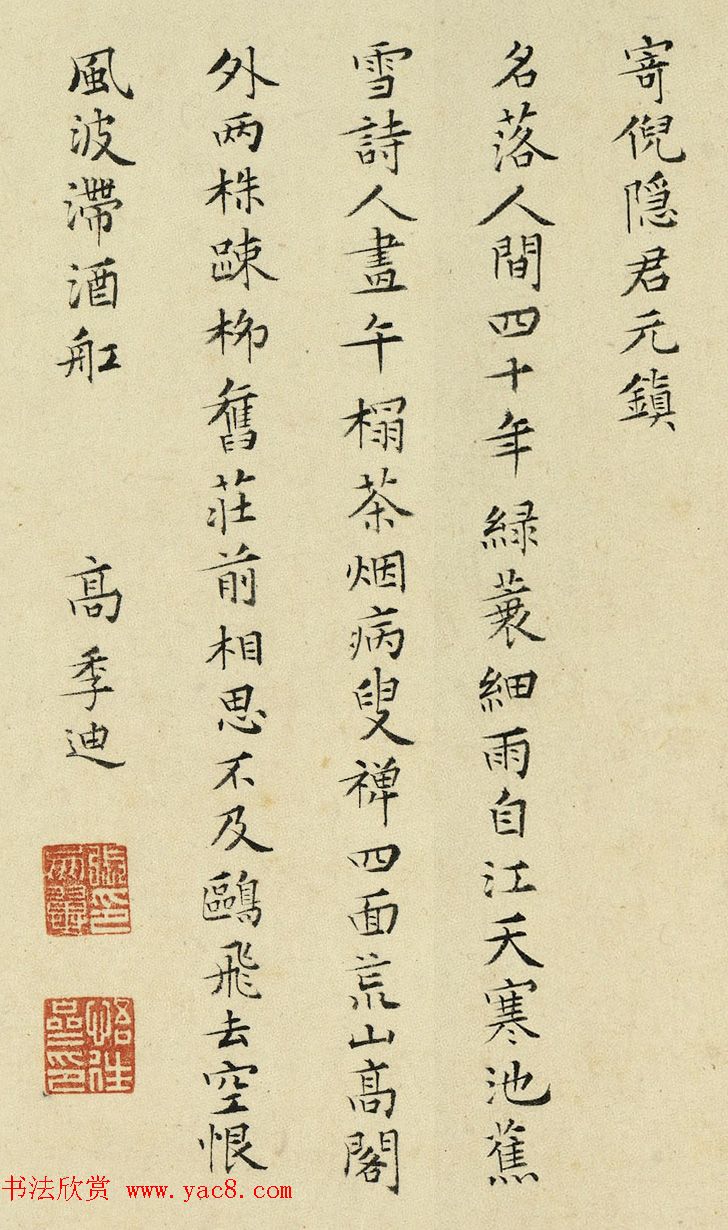 寄倪隐君元鎮
名落人間四十年綠蓑細雨自江天寒池蕉
雪詩人畫午榻茶烟病叟禅四面荒山高閣
外两株踈桞舊莊前相思不及鷗飛去空恨
風波滯酒舡
高季迪
书法欣赏 www.yac8.com